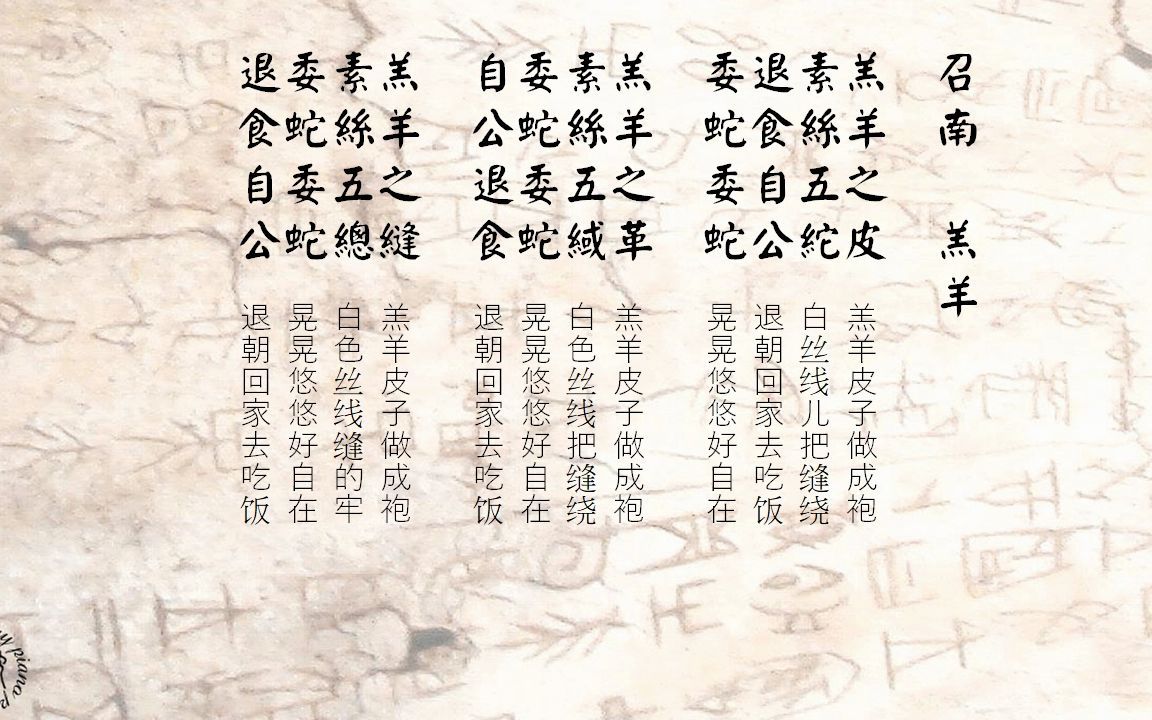 召南 羔羊
羔羊之皮
素絲五紽
退食自公
委蛇委蛇
羔羊皮子做成袍
白丝线儿把缝绕
退朝回家去吃饭
晃晃悠悠好自在
羔羊之革
素絲五緎
委蛇委蛇
自公退食
羔羊皮子做成袍
白色丝线把缝绕
晃晃悠悠好自在
退朝回家去吃饭
羔羊之縫
素絲五總
委蛇委蛇
退食自公
羔羊皮子做成袍
白色丝线缝的牢
晃晃悠悠好自在
退朝回家去吃饭
piano